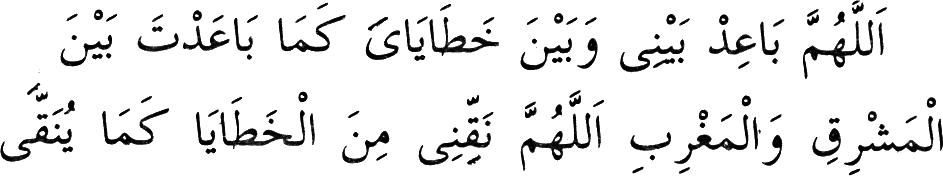 اَللَّهُمَّ بَاعِدْ بَيْنِى وَبَيْنَ خَطَايَاىَ كَمَا بَاعَدْتَ بَيْنَ
الْمَشْرِقِ وَالْمَغْرِبِ اَللَّهُمَّ نَقِّنِى مِنَ الْخَطَايَا كَمَا يُنَقَّى